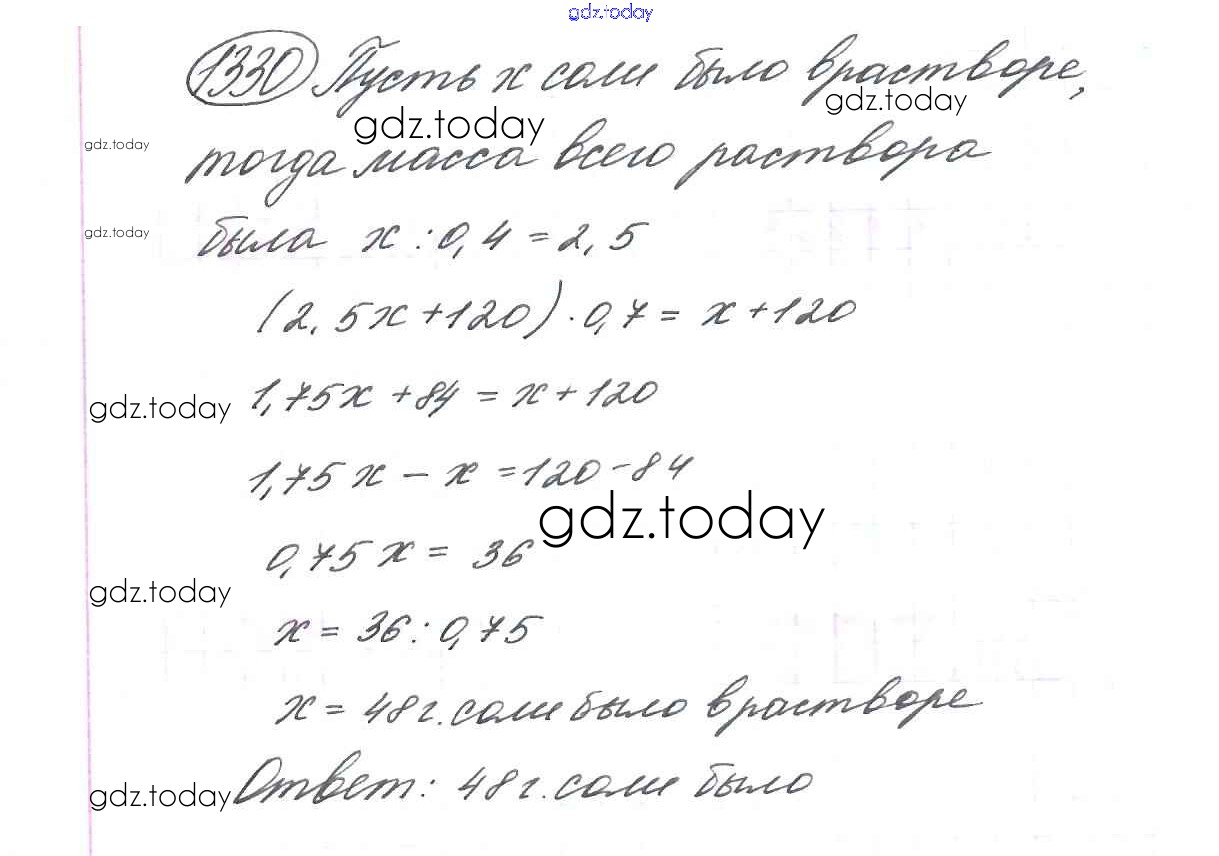 gdz.today
1330 Пусть х соли было в растворе,
gdz.today
gdz.today
gdz.today
тогда масса всего раствора
gdz.today
была х : 0,4 = 2,5
(2,5х + 120) · 0,7 = х + 120
gdz.today
1,75х + 84 = х + 120
1,75х - х = 120 - 84
gdz.today
0,75х = 36
gdz.today
х = 36 : 0,75
х = 48 г. соли было в растворе
gdz.today
Ответ: 48 г. соли было